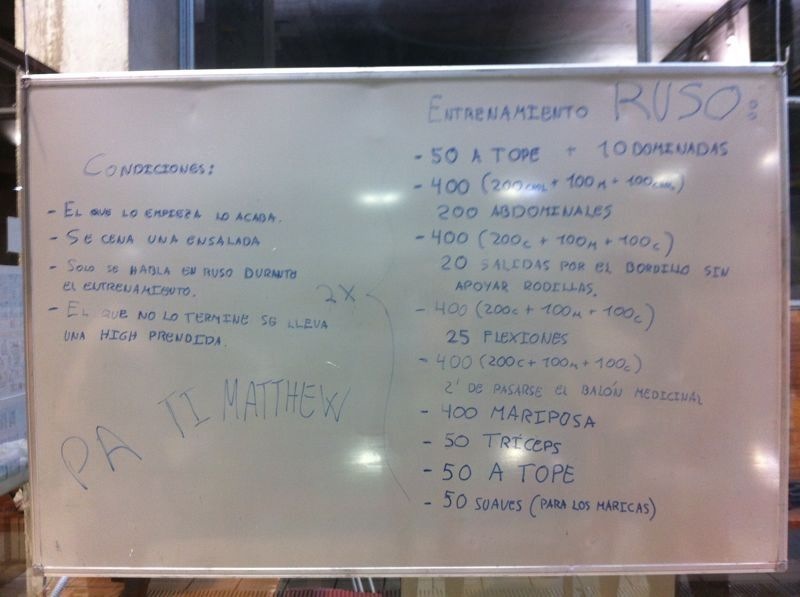 CONDICIONES:
- EL QUE LO EMPIEZA LO ACABA.
- SE CENA UNA ENSALADA
- SOLO SE HABLA EN RUSO DURANTE
EL ENTRENAMIENTO.
- EL QUE NO LO TERMINE SE LLEVA
UNA HIGH PRENDIDA.
PA TI MATTHEW
ENTRENAMIENTO RUSO:
- 50 A TOPE + 10 DOMINADAS
- 400 (200 + 100M + 100)
200 ABDOMINALES
- 400 (200C + 100M + 100C)
20 SALIDAS POR EL BORDILLO SIN
APOYAR RODILLAS.
2X
- 400 (200C + 100M + 100C)
25 FLEXIONES
- 400 (200C + 100M + 100C)
2' DE PASARSE EL BALÓN MEDICINAL
- 400 MARIPOSA
- 50 TRÍCEPS
- 50 A TOPE
- 50 SUAVES (PARA LOS MARICAS)